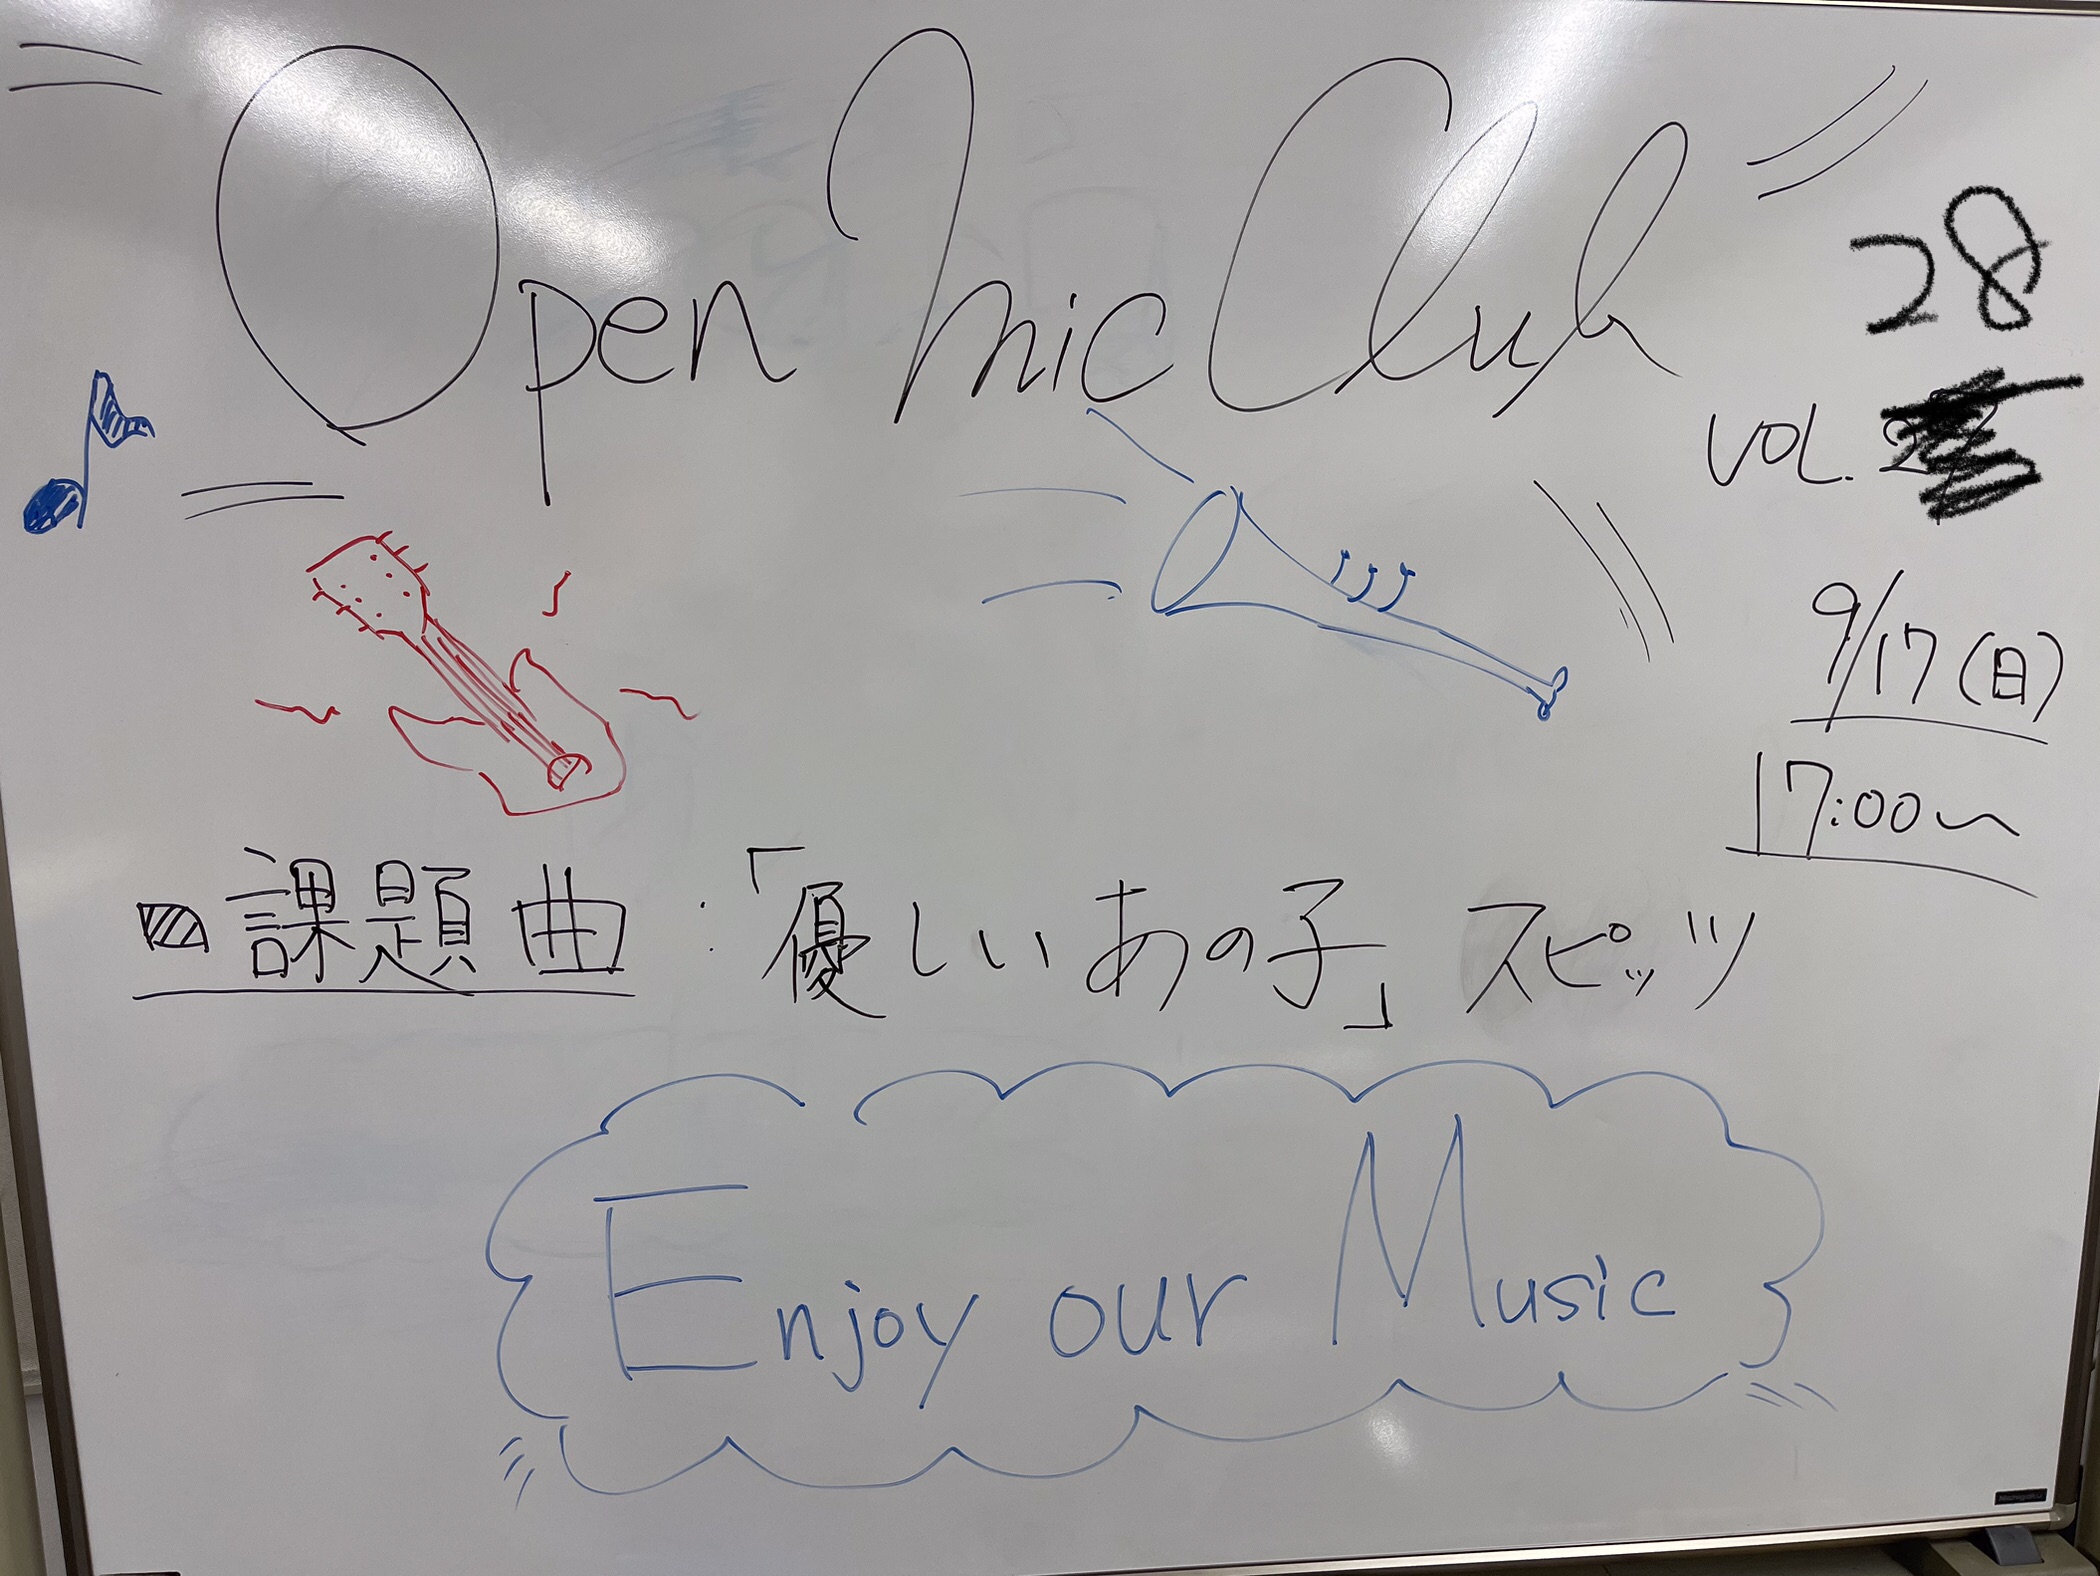 Open Mic Club
28
VOL.
9/17(日)
17:00〜
課題曲:「優しいあの子」スピッツ
Enjoy our Music